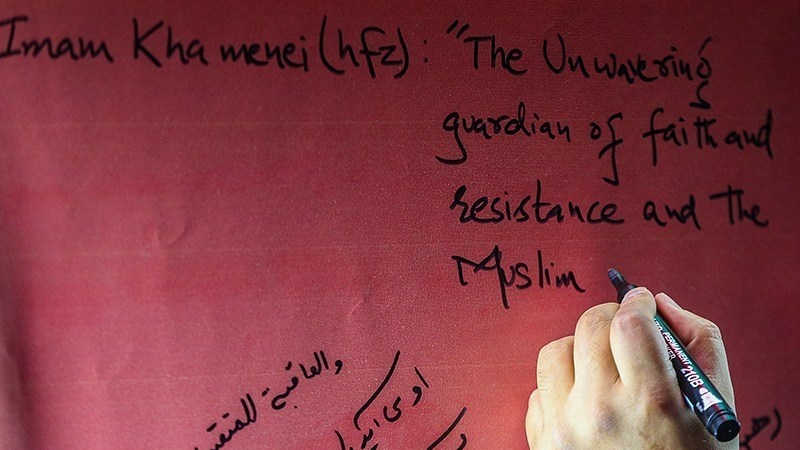 Imam Khamenei (hfz): "The Unwavering
guardian of faith and
resistance and The
Muslim
والعاقبة للمتقين
PERMANENT
210B